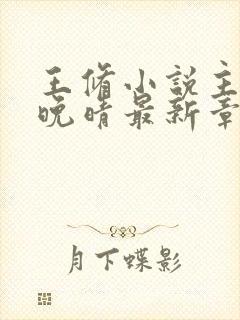 王脩小说主
晚晴最新章
月下蝶影